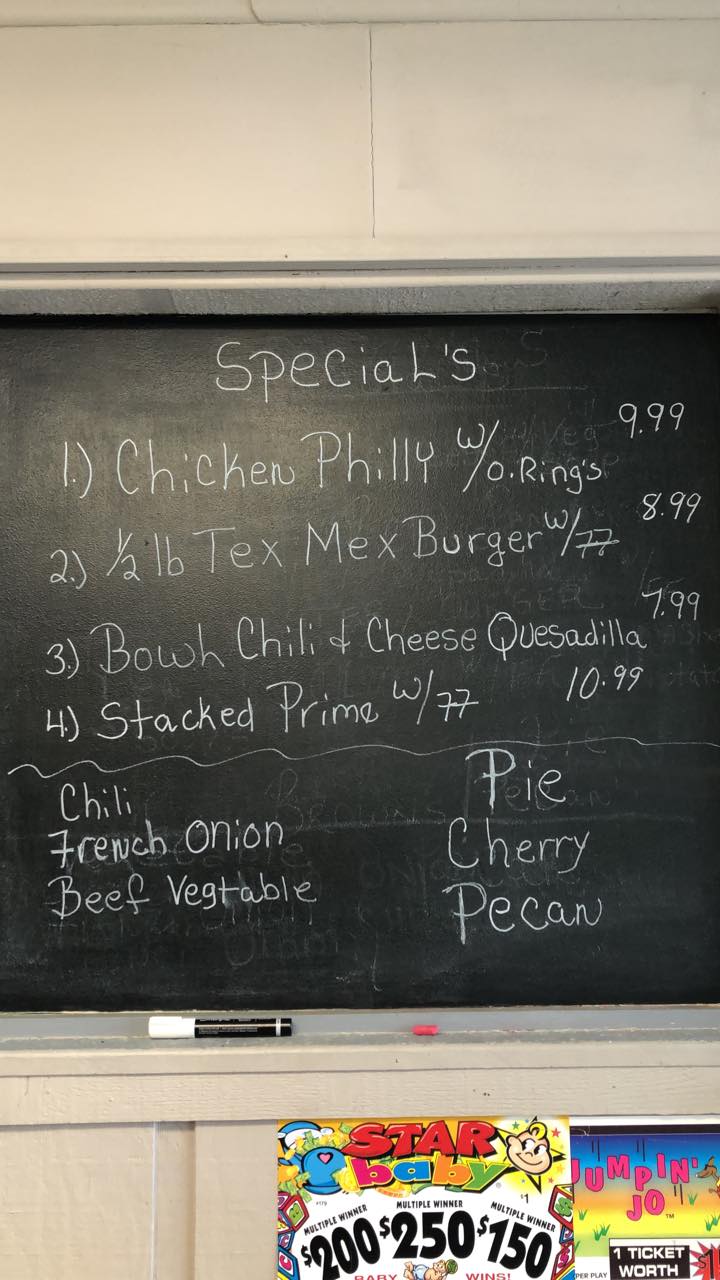 Special's
1.) Chicken Philly w/ O. Ring's 9.99
2.) ½ lb Tex Mex Burger w/ 77 8.99
3.) Bowh Chili & Cheese Quesadilla 7.99
4.) Stacked Prime w/ 77 10.99
Chili
French Onion
Beef Vegtable
Pie
Cherry
Pecan
STAR
baby
$1
MULTIPLE WINNER
MULTIPLE WINNER
MULTIPLE WINNER
$200 $250 $150
BABY WINS!
JUMPIN'
JO™
PER PLAY
1 TICKET
WORTH